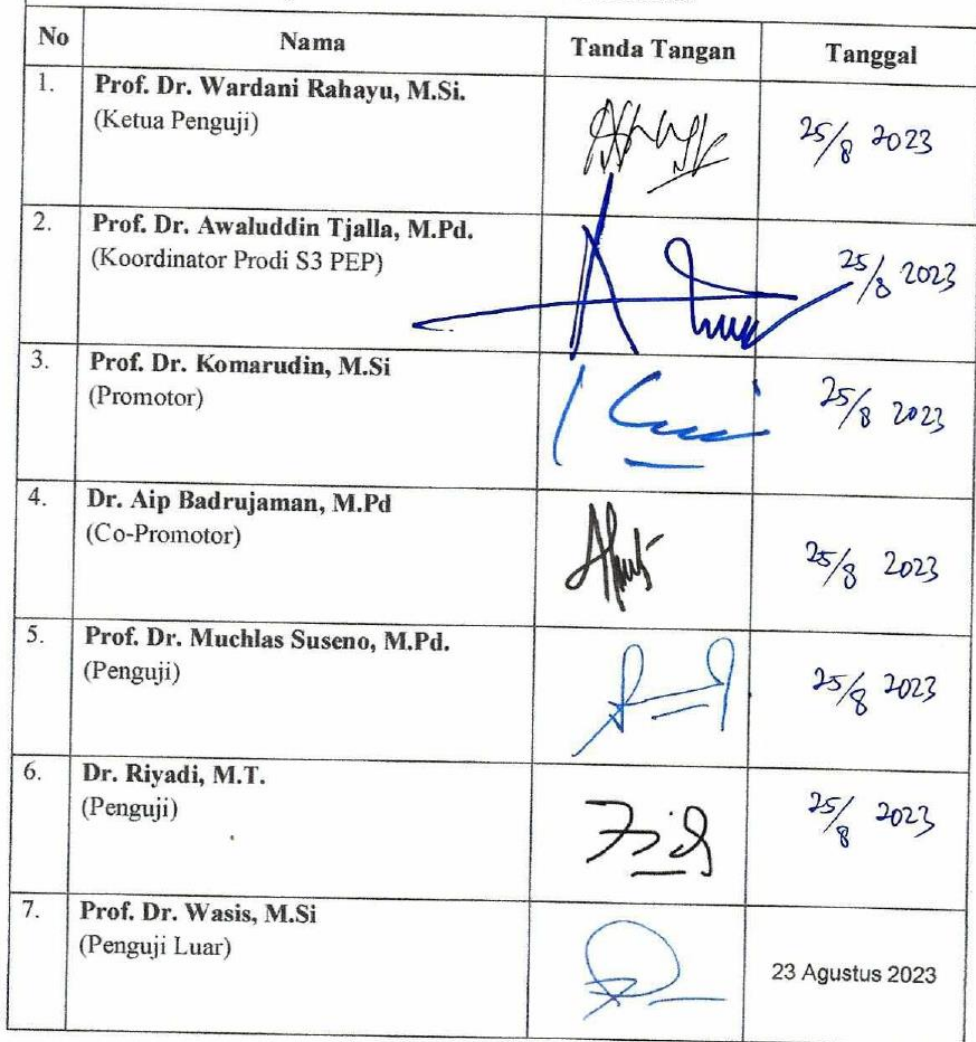 No Nama Tanda Tangan Tanggal
1. Prof. Dr. Wardani Rahayu, M.Si.
(Ketua Penguji)
25/8 2023
2. Prof. Dr. Awaluddin Tjalla, M.Pd.
(Koordinator Prodi S3 PEP)
25/8 2023
3. Prof. Dr. Komarudin, M.Si
(Promotor)
25/8 2023
4. Dr. Aip Badrujaman, M.Pd
(Co-Promotor)
25/8 2023
5. Prof. Dr. Muchlas Suseno, M.Pd.
(Penguji)
25/8 2023
6. Dr. Riyadi, M.T.
(Penguji)
25/8 2023
7. Prof. Dr. Wasis, M.Si
(Penguji Luar)
23 Agustus 2023